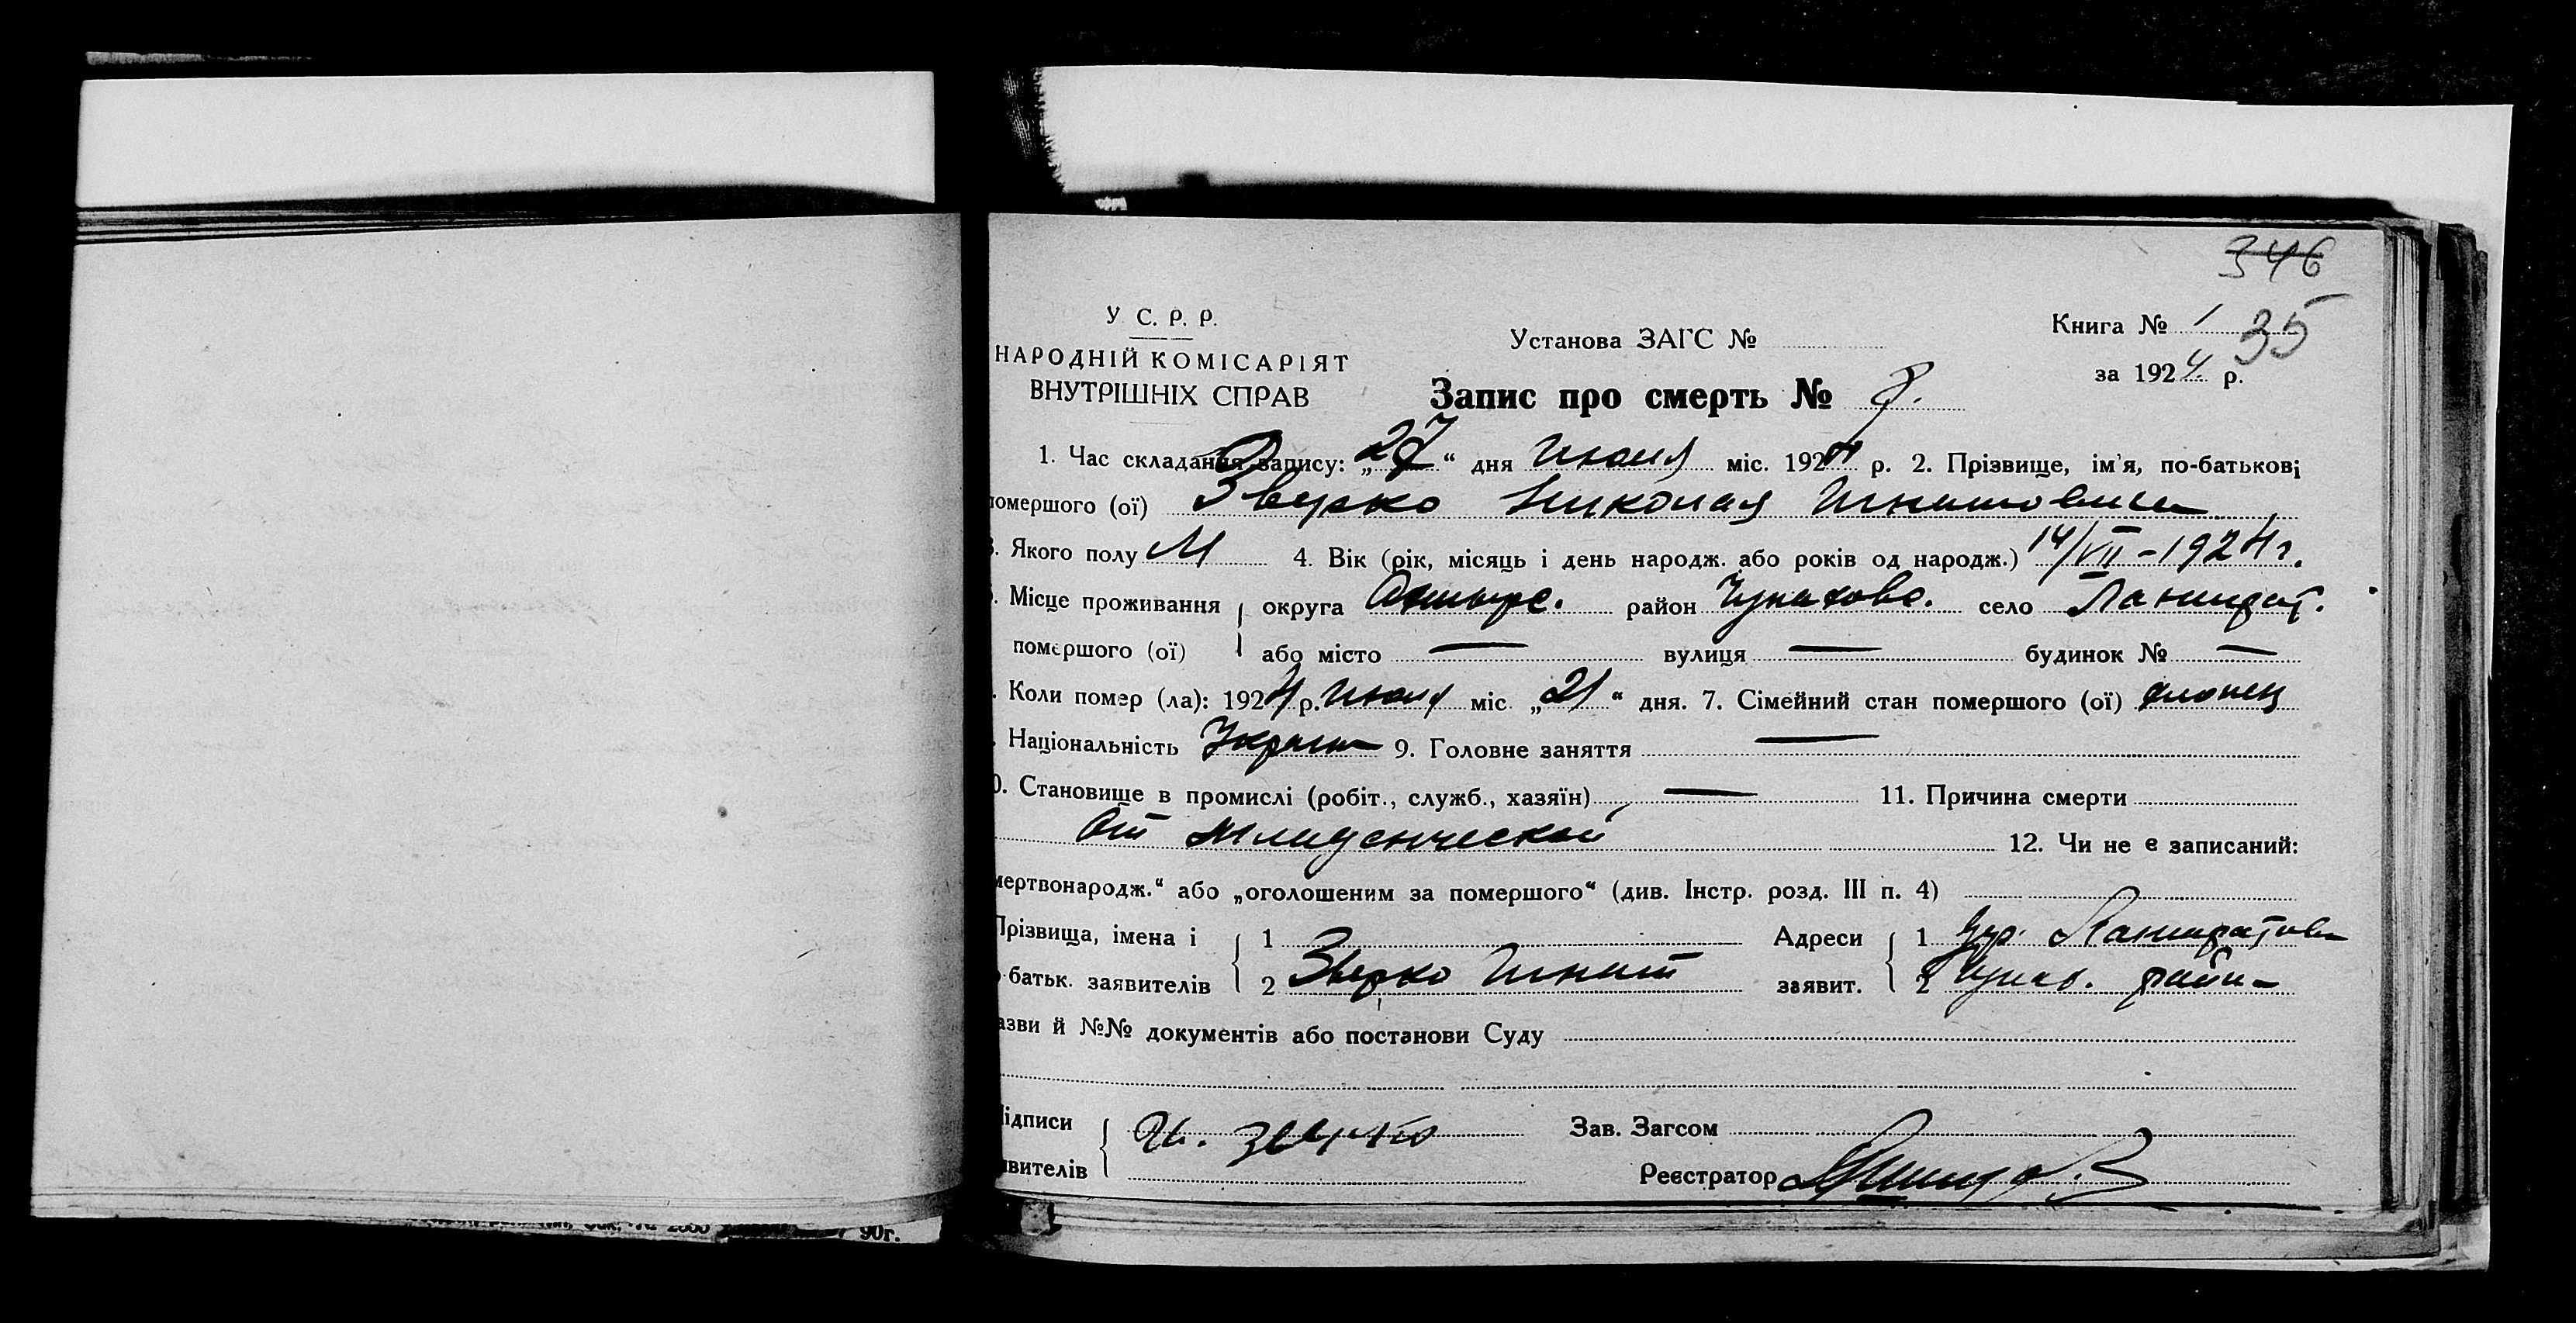 346
У. С. Р. Р.
НАРОДНІЙ КОМІСАРІЯТ
ВНУТРІШНІХ СПРАВ
Установа ЗАГС №
Книга № 1 35
за 1924 р.
Запис про смерть № 8.
1. Час складання запису: „27“ дня Июля міс. 1924 р. 2. Прізвище, ім'я, по-батькові
омершого (ої) Зверко Николая Игнатовича
. Якого полу М 4. Вік (рік, місяць і день народж. або років од народж.) 14/VII-1924 г.
. Місце проживання округа Ахтырс. район Чупахово. село
помершого (ої) або місто — вулиця — будинок № —
. Коли помер (ла): 1924 р. Июля міс. „21“ дня. 7. Сімейний стан помершого (ої) хлопец
. Національність Украин 9. Головне заняття —
0. Становище в промислі (робіт., служб., хазяїн) — 11. Причина смерти
От младенческой 12. Чи не є записаний:
мертвонародж.“ або „оголошеним за помершого“ (див. Інстр. розд. III п. 4)
Прізвища, імена і 1 Адреси 1
батьк. заявителів 2 Зверко Игнат заявит. 2 Чупах. район
азви й №№ документів або постанови Суду
ідписи Зав. Загсом
явителів Реєстратор
90г.